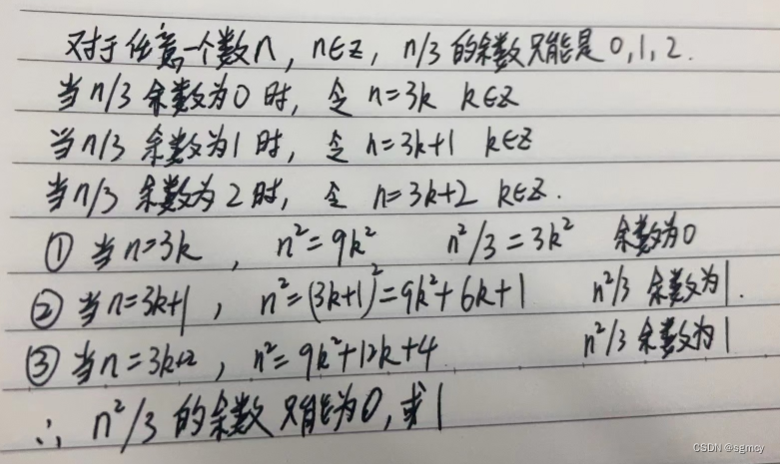 对于任意一个数n, n∈Z, n/3 的余数只能是 0,1,2.
当 n/3 余数为0 时, 令 n=3k k∈Z
当 n/3 余数为1 时, 令 n=3k+1 k∈Z
当 n/3 余数为 2 时, 令 n=3k+2 k∈Z.
① 当 n=3k , n²=9k² n²/3=3k² 余数为0
② 当 n=3k+1 , n²=(3k+1)²=9k²+6k+1 n²/3 余数为1.
③ 当 n=3k+2 , n²=9k²+12k+4 n²/3 余数为1
∴ n²/3 的余数 只能为0,或1
CSDN @sgmcy